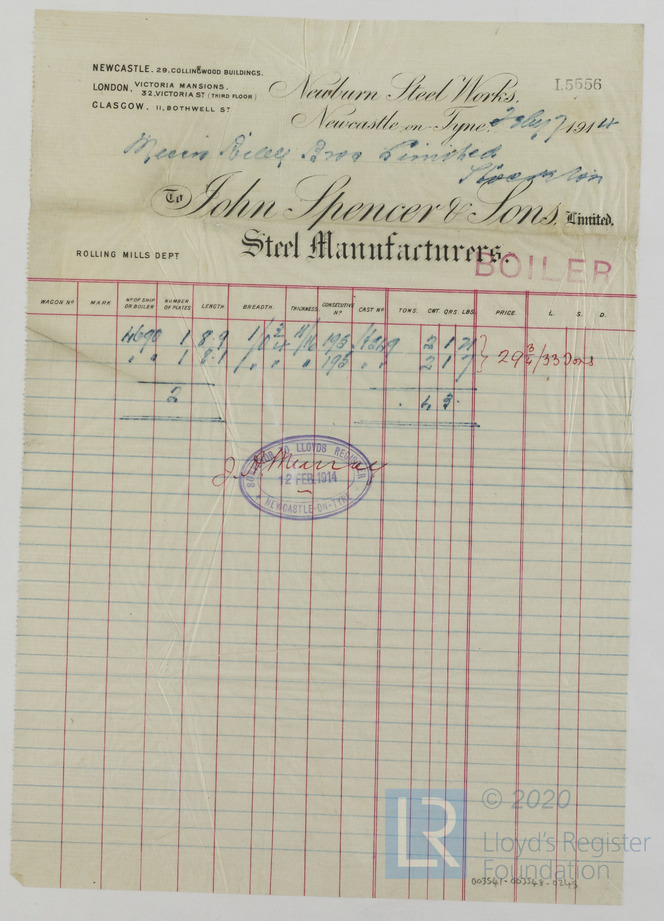 NEWCASTLE. 29. COLLINGWOOD BUILDINGS.
LONDON. VICTORIA MANSIONS.
32. VICTORIA ST (THIRD FLOOR)
GLASGOW. 11, BOTHWELL ST
I.5556
Newburn Steel Works,
Newcastle on Tyne. Feby 7 1914
Messrs Riley Bros Limited
Stockton
To John Spencer & Sons, Limited.
Steel Manufacturers.
ROLLING MILLS DEPT
BOILER
WAGON No MARK No OF SHIP OR BOILER NUMBER OF PLATES LENGTH BREADTH THICKNESS CONSECUTIVE No CAST No TONS. CWT. QRS. LBS. PRICE. L. S. D.
4690 1 8.9 11/16 195 2 1 21
" " 1 8.1 " " " " " 2 1 7
29 3/4 /33 Tons
2 . 4 3 .
J. H. Murray
LLOYDS REGISTER
12 FEB. 1914
NEWCASTLE-ON-TYNE
LR
© 2020
Lloyd's Register
Foundation
003547-003548-0243